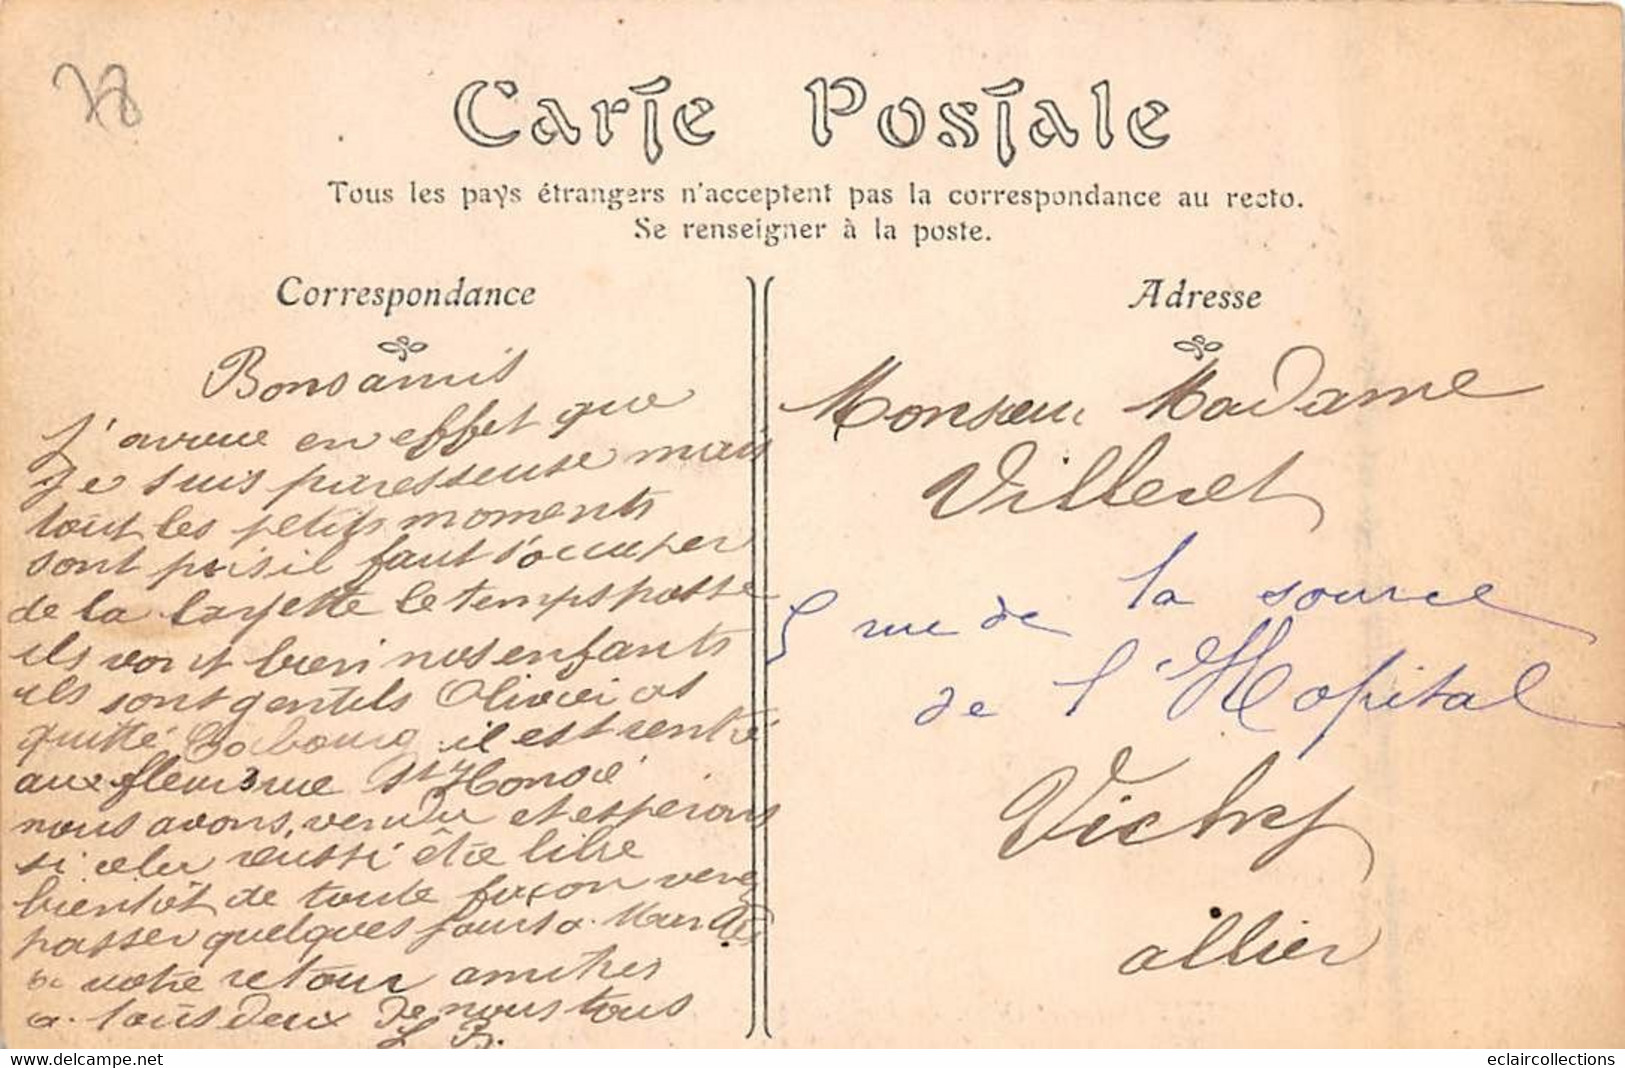 78
Carte Postale
Tous les pays étrangers n'acceptent pas la correspondance au recto.
Se renseigner à la poste.
Correspondance
Adresse
Bons amis
J'avoue en effet que
je suis paresseuse mais
tout les petits moments
sont pris il faut s'occuper
de la layette le temps passe
ils vont bien nos enfants
ils sont gentils Olivier as
quitté Cabourg il est rentré
aux fleurs rue St Honoré
nous avons vendu et esperons
si cela reussi être libre
bientôt de toute façon venez
passer quelques jours a
a votre retour amitiés
a tous deux de nous tous
L B.
Monsieur Madame
Villeret
5 rue de la source
de l'Hopital
Vichy
allier
eclaircollections